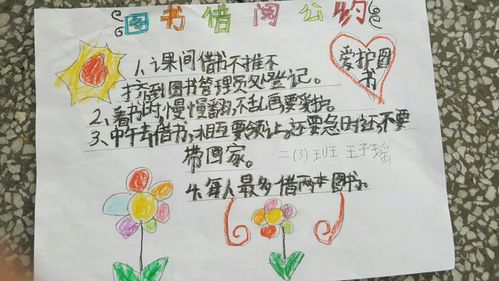 图书借阅公约
1、课间借书不推不
挤到图书管理员处登记。
2、看书时慢慢翻,不乱画要爱护。
3、中午去借书,相互要领让,还要急时还,不要
带回家。
二(3)班 王子瑶
4、每人最多借两本图书。
爱护图
书